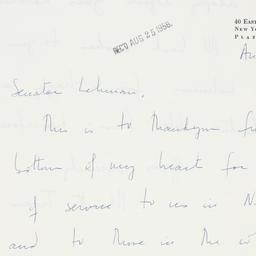 40 Eas
New Yo
Plaz
REC'D AUG 25 1958
Au
Senator Lehman,
This is to thank you fr
bottom of my heart for
of service to us in N.
and to those in the co